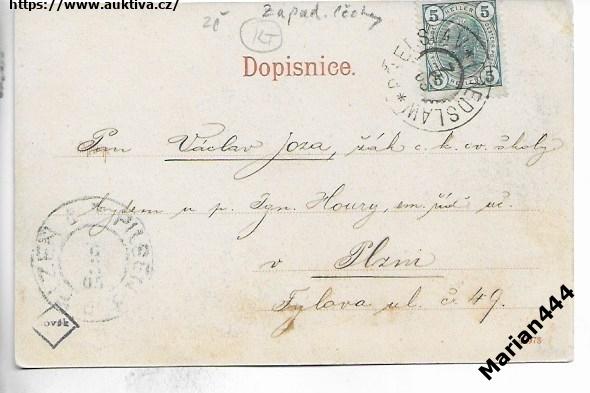 https://www.auktiva.cz/
Západ. Čechy
KT
Dopisnice.
5 HELLER 5
5 5
PŘEDSLAV * PŘEDSLAW *
Pan Václav Joza, žák c. k. cv. školy
bydem u p. Ign. Houry, em. říd. uč.
v Plzni
Tylova ul. č. 49.
PILSEN PLZEŇ
ověk
Marian444